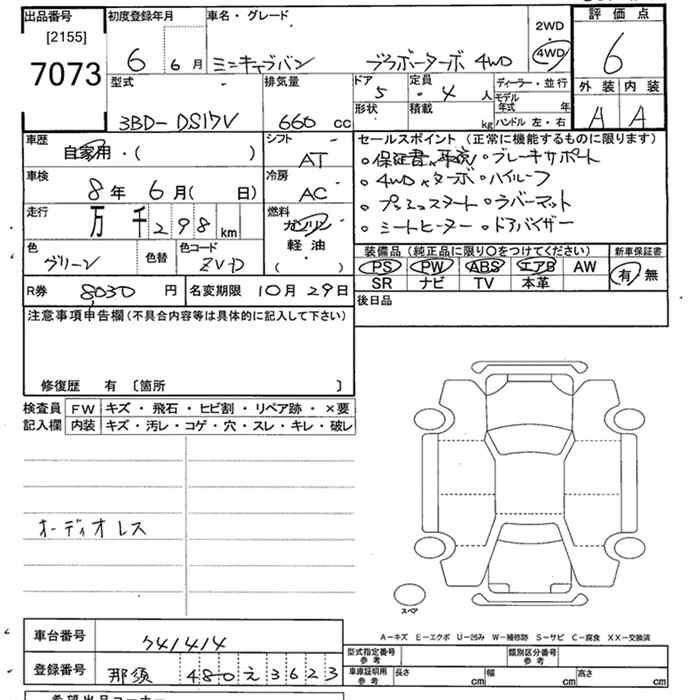 出品番号
[2155]
7073
初度登録年月
6 6月
車名・グレード
ミニキャブバン ブラボーターボ 4WD
2WD
4WD
評価点
6
外装 内装
A A
型式
3BD-DS17V
排気量
660 cc
ドア
5
定員
4 人
形状
積載
kg
ディーラー・並行
モデル年式 年
ハンドル 左・右
車歴
自家用・( )
シフト
AT
車検
8年 6月( 日)
冷房
AC
走行
万 千 298 km
燃料
ガソリン
軽油
( )
色
グリーン
色替
色コード
R券 8030 円
名変期限 10月 29日
セールスポイント (正常に機能するものに限ります)
○保証書 ○ブレーキサポート
○4WD ターボ ○ハイルーフ
○プッシュスタート ○ラバーマット
○シートヒーター ○ドアバイザー
装備品 (純正品に限り〇をつけてください)
新車保証書
PS PW ABS エアB AW
有・無
SR ナビ TV 本革
後日品
注意事項申告欄(不具合内容等は具体的に記入して下さい)
修復歴 有 〔箇所 〕
検査員
記入欄
FW キズ・飛石・ヒビ割・リペア跡・×要
内装 キズ・汚レ・コゲ・穴・スレ・キレ・破レ
オーディオレス
スペア
A-キズ E-エクボ U-凹み W-補修跡 S-サビ C-腐食 XX-交換済
車台番号 741414
登録番号 那須 480 え 3623
型式指定番号
参考
類別区分番号
参考
車庫証明用
参考
長さ cm 幅 cm 高さ cm
希望出品コーナー